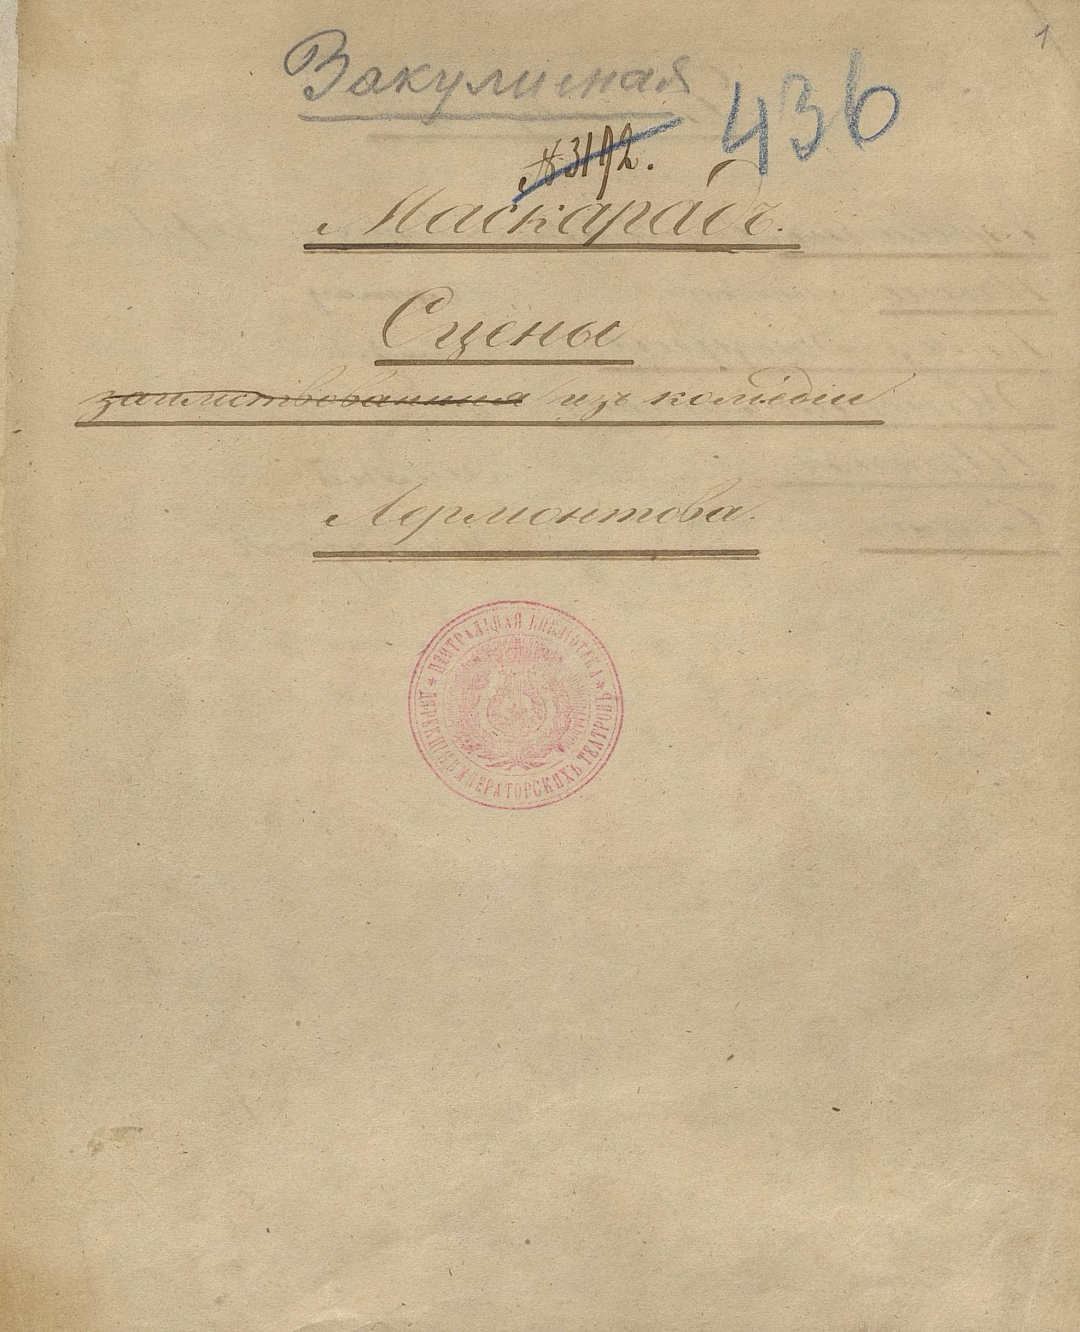 1
Закулисная
436
№ 3192.
Маскарадъ.
Сцены
заимствованныя изъ комедіи
Лермонтова.
* ЦЕНТРАЛЬНАЯ БИБЛІОТЕКА *
ДИРЕКЦІИ ИМПЕРАТОРСКИХЪ ТЕАТРОВЪ